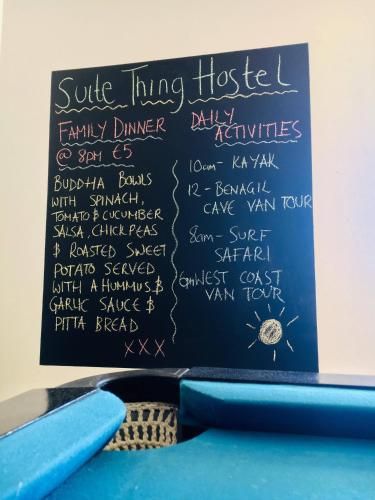 Suite Thing Hostel
FAMILY DINNER
@ 8PM £5
BUDDHA BOWLS
WITH SPINACH,
TOMATO & CUCUMBER
SALSA, CHICKPEAS
& ROASTED SWEET
POTATO SERVED
WITH A HUMMUS &
GARLIC SAUCE &
PITTA BREAD
XXX
DAILY
ACTIVITIES
10am - KAYAK
12 - BENAGIL
CAVE VAN TOUR
8am - SURF
SAFARI
6pm WEST COAST
VAN TOUR